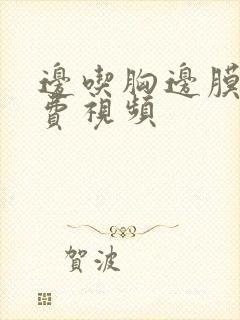 邊喫胸邊膜
費視頻
賀波